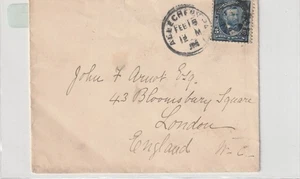 FEB 18
12 M
John F Arnot Esq.
43 Bloomsbury Square
London
England W-C-